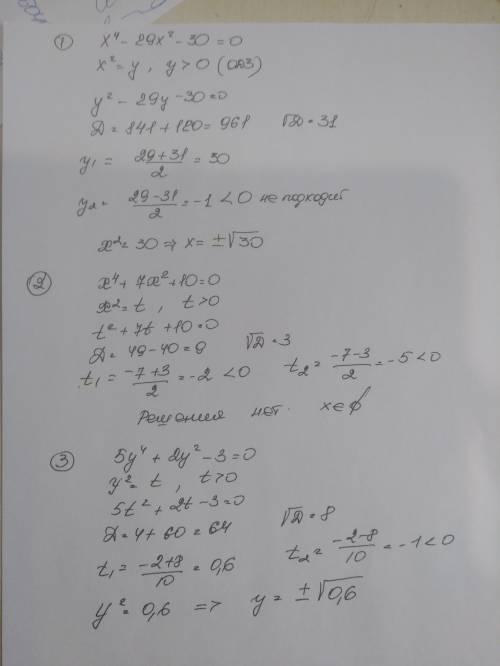 ① x⁴ - 29x² - 30 = 0
x² = y, y > 0 (ОДЗ)
y² - 29y - 30 = 0
D = 841 + 120 = 961 √D = 31
y₁ = (29+31)/2 = 30
y₂ = (29-31)/2 = -1 < 0 не подходит
x² = 30 ⇒ x = ±√30
② x⁴ + 7x² + 10 = 0
x² = t, t > 0
t² + 7t + 10 = 0
D = 49 - 40 = 9 √D = 3
t₁ = (-7+3)/2 = -2 < 0 t₂ = (-7-3)/2 = -5 < 0
Решения нет. x ∈ ϕ
③ 5y⁴ + 2y² - 3 = 0
y² = t, t > 0
5t² + 2t - 3 = 0
D = 4 + 60 = 64 √D = 8
t₁ = (-2+8)/10 = 0,6 t₂ = (-2-8)/10 = -1 < 0
y² = 0,6 => y = ±√0,6